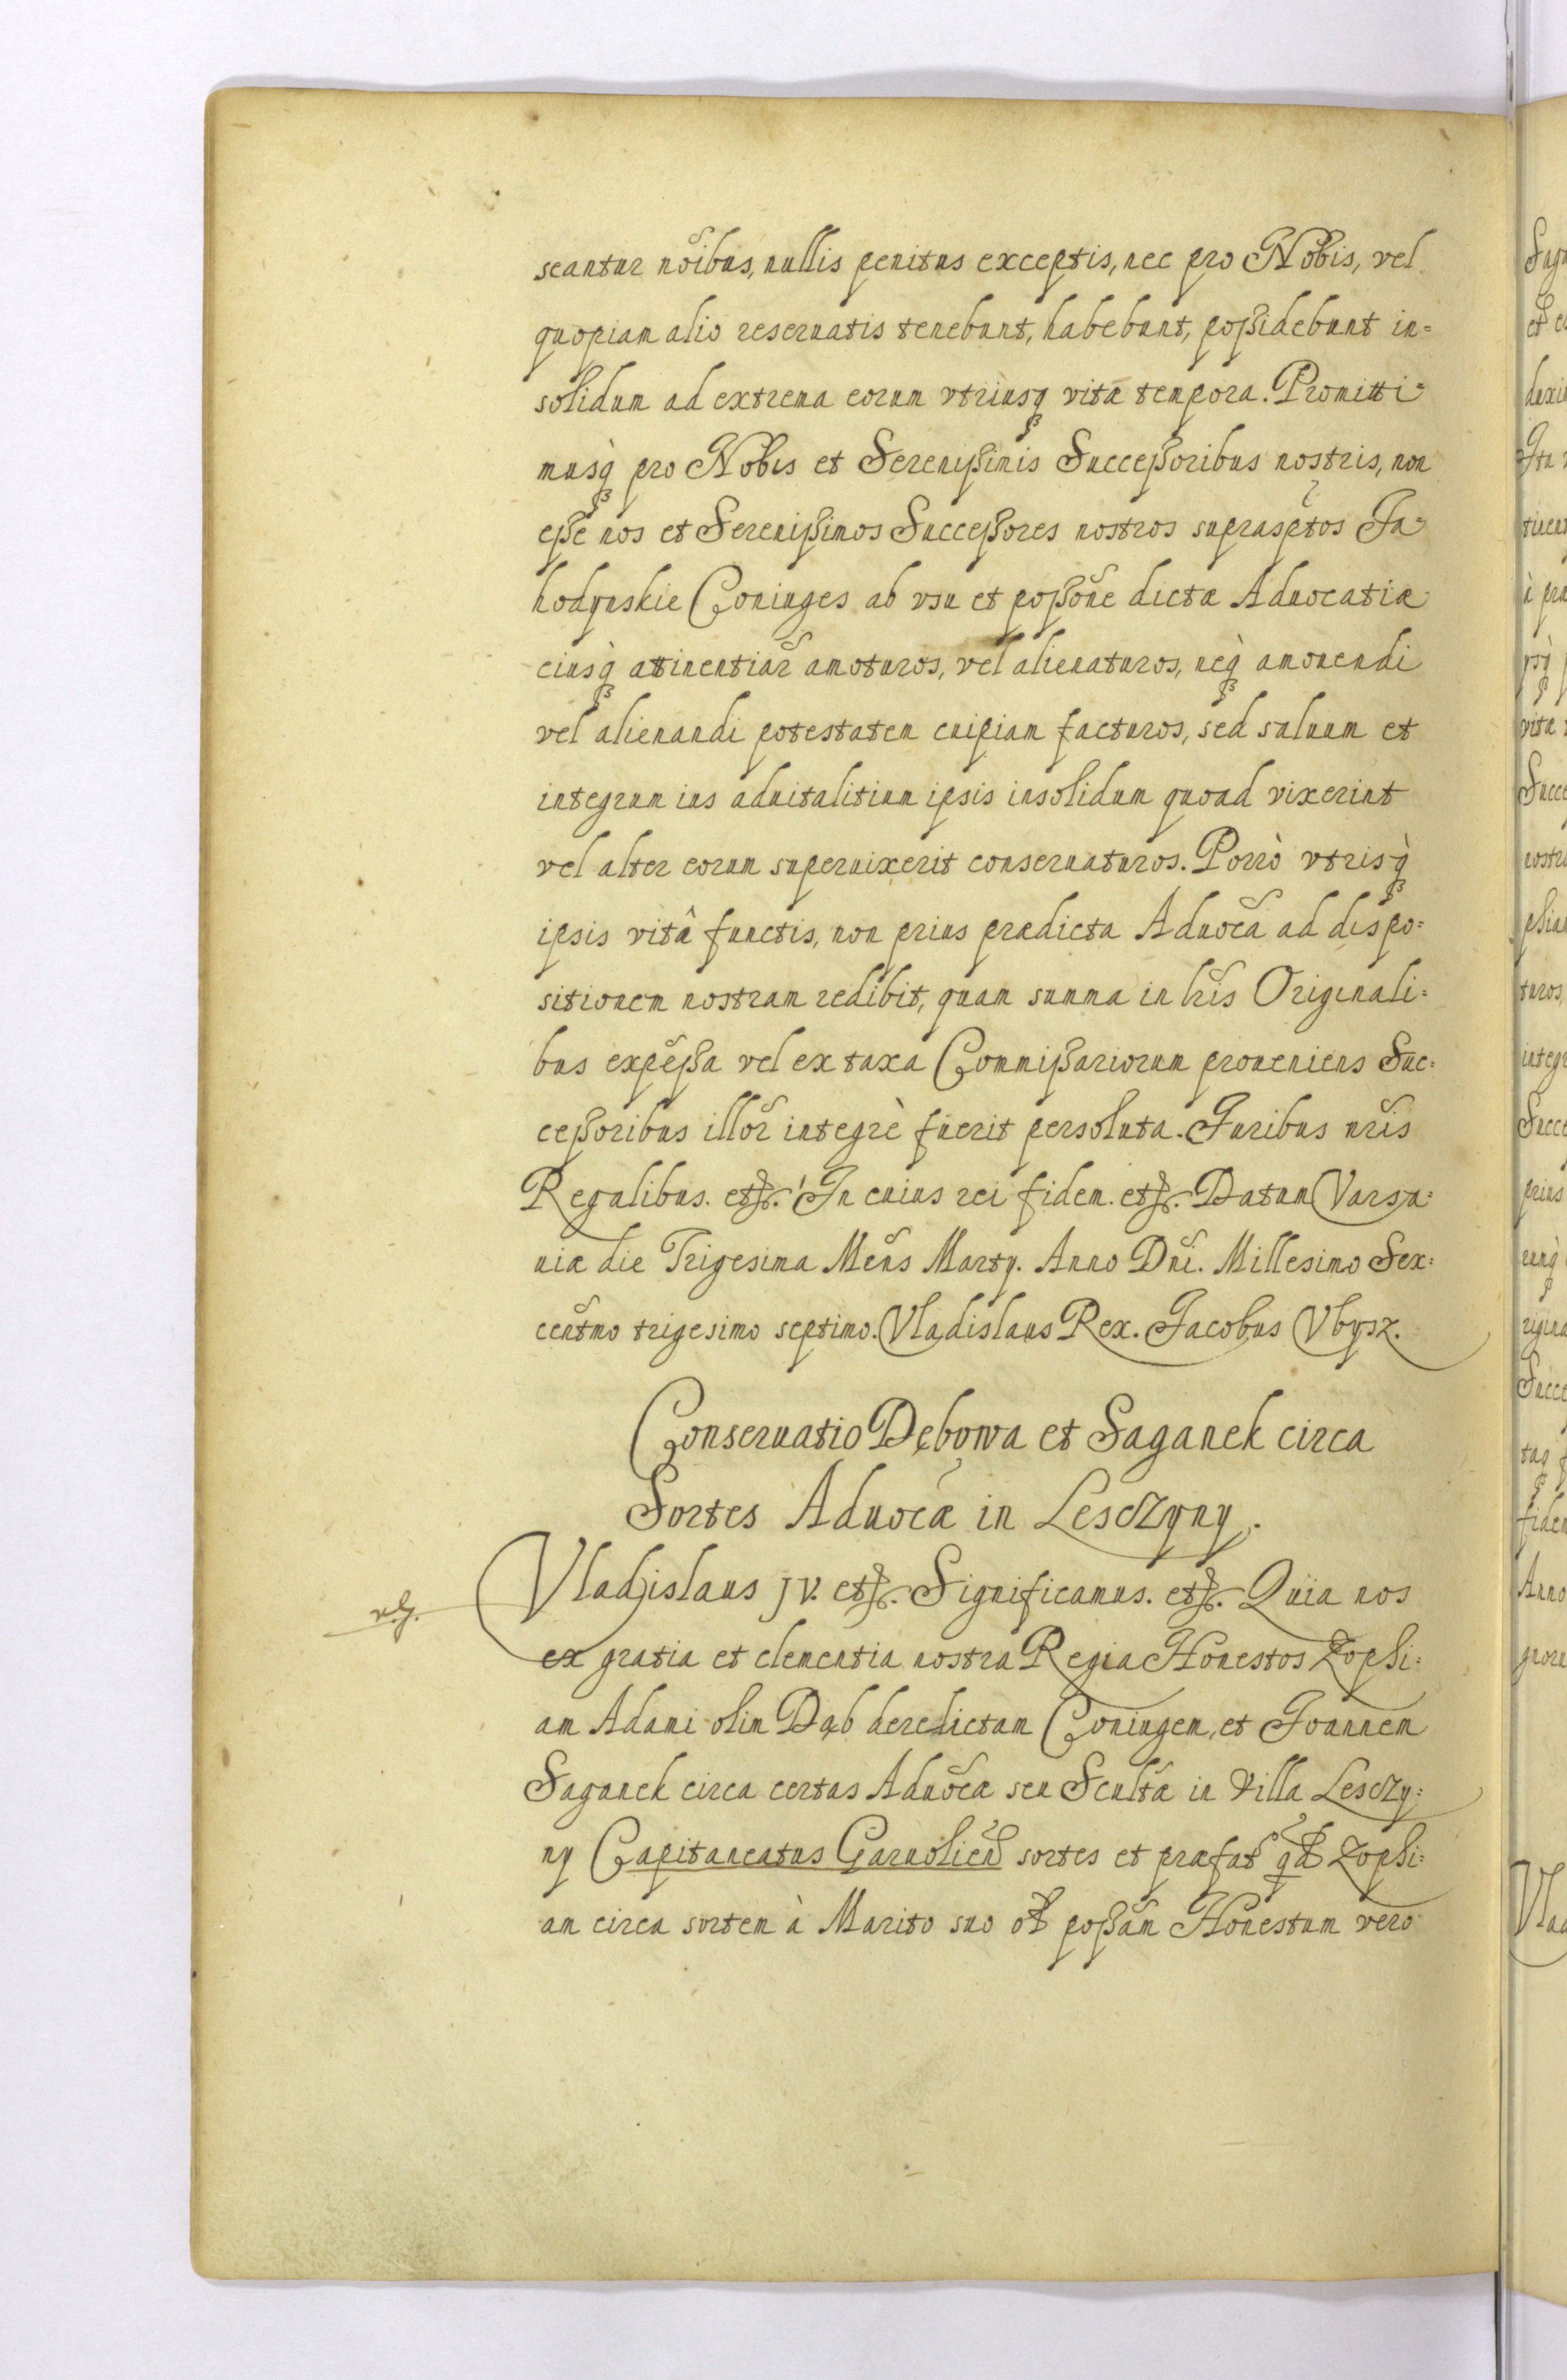 seantur nõibus, nullis penitus exceptis, nec pro Nobis, vel
quopiam alio reseruatis tenebunt, habebunt, poßidebunt in=
solidum ad extrema eorum vtriusq; vitæ tempora. Promitti=
musq̀; pro Nobis et Sereniß̃imis Succeßoribus nostris, non
eße nos et Serenißimos Succeßores nostros suprasp̃tos Ja
hodynskie Coniuges ab vsu et poßõne dictæ Aduocatiæ
eiusq̀; attinentiar̃ amoturos, vel alienaturos, neq̀; amouendi
vel alienandi potestatem cuipiam facturos, sed saluum et
integrum ius aduitalitium ipsis insolidum quoad vixerint
vel alter eorum superuixerit conseruaturos. Porrò vtrisq̀;
ipsis vitâ functis, non prius prædicta Aduoc̃a ad dispo=
sitionem nostram redibit, quam summa in lr̃is Originali=
bus exp̃eßa vel ex taxa Commißariorum proueniens Suc=
ceßoribus illor̃ integrè fuerit persoluta. Juribus nr̃is
Regalibus. etc. In cuius rei fidem. etc. Datum Varsa=
uiæ die Trigesima Mẽns Marty. Anno Dñi. Millesimo Sex=
centm̃o trigesimo septimo. Vladislaus Rex. Jacobus Vbysz.
Conseruatio Dębowa et Saganek circa
Sortes Aduoc̃æ in Lesczyny.
Vladislaus jv. etc. Significamus. etc. Quia nos
ex gratia et clementia nostra Regia Honestos Zophi=
am Adami olim Dąb derelictam Coniugem, et Joannem
Saganek circa certas Aduoc̃æ seu Scult̃æ in Villa Lesczy=
ny Capitaneatus Garuolieñ sortes et præfat̃ qd̃ Zophi=
am circa sortem à Marito suo ol̃ poßãm Honestum vero